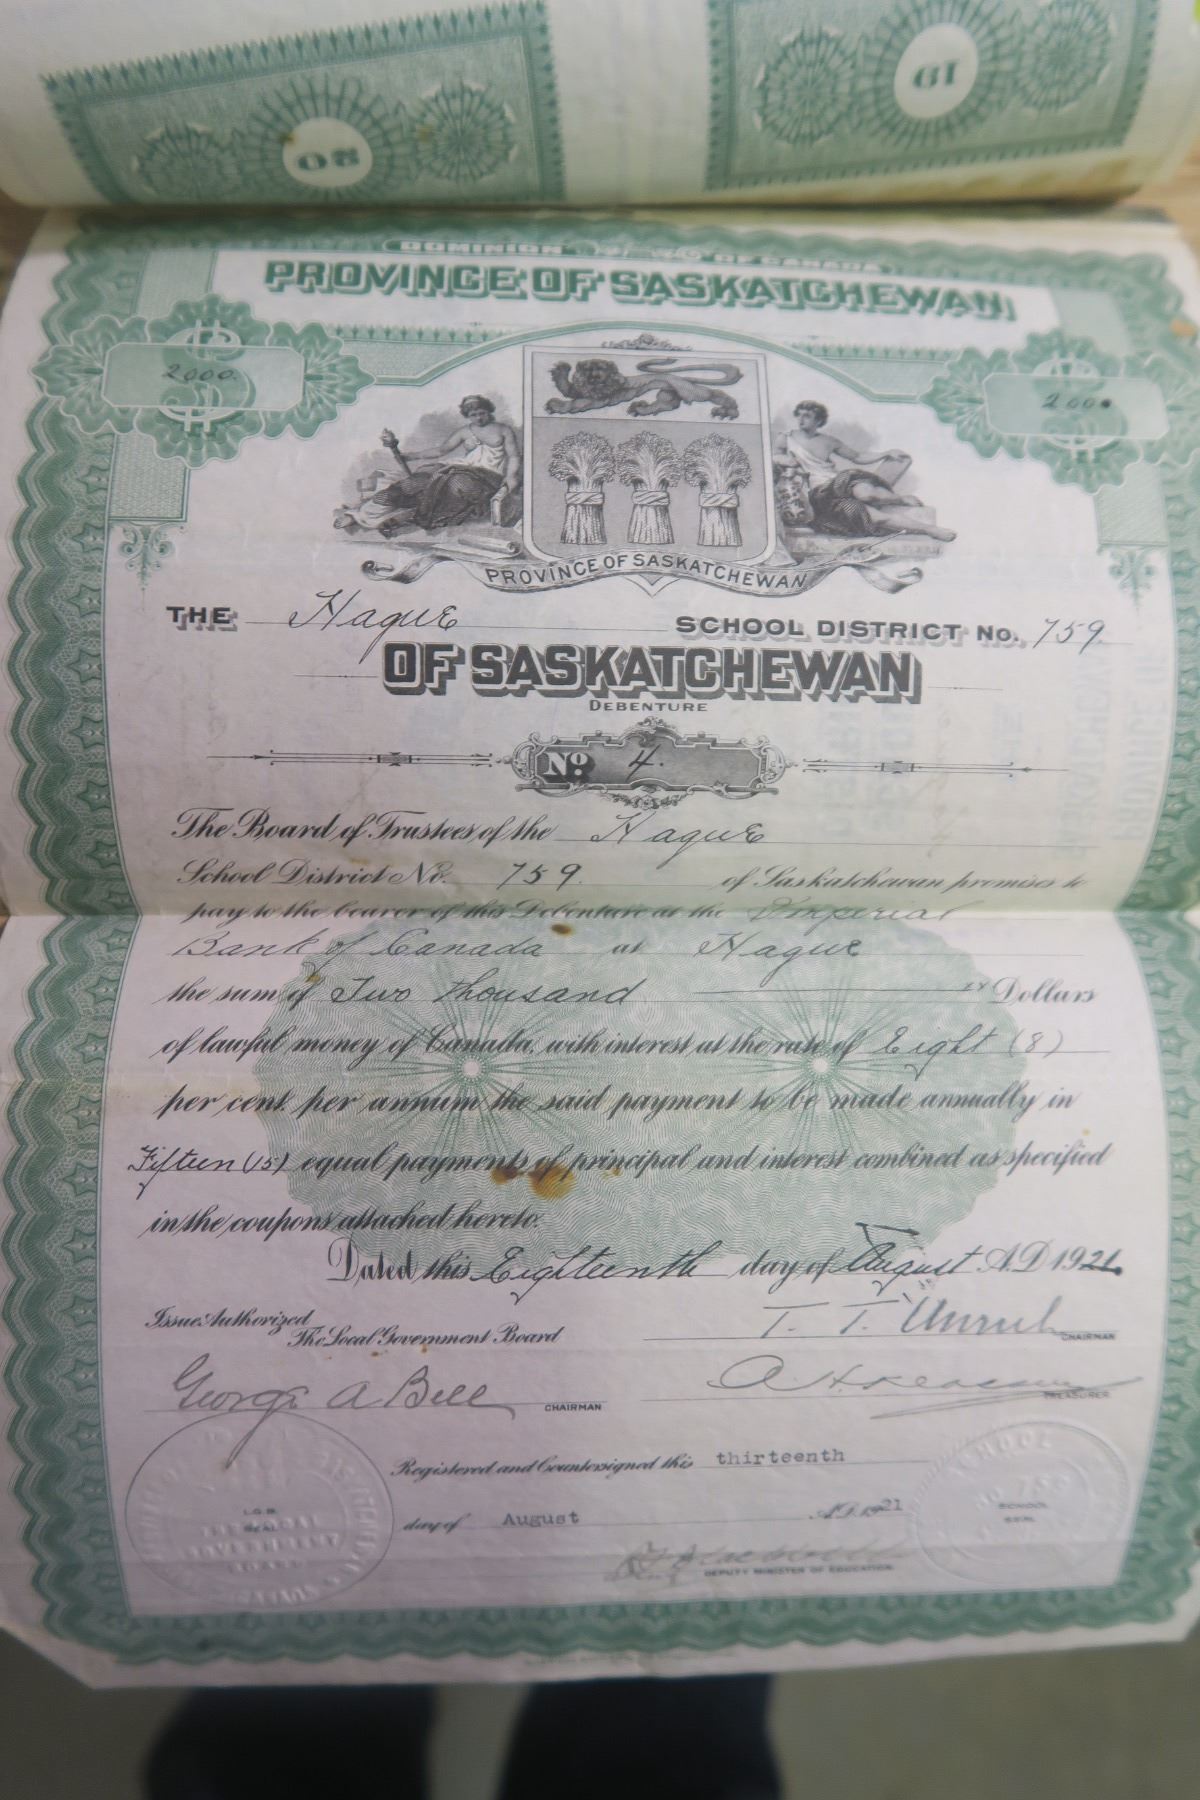 20
19
DOMINION OF CANADA
PROVINCE OF SASKATCHEWAN
2000.
2000
PROVINCE OF SASKATCHEWAN
THE Hague SCHOOL DISTRICT No. 759
OF SASKATCHEWAN
DEBENTURE
No. 4.
The Board of Trustees of the Hague
School District No. 759. of Saskatchewan promises to
pay to the bearer of this Debenture at the Imperial
Bank of Canada at Hague
the sum of Two Thousand Dollars
of lawful money of Canada, with interest at the rate of Eight (8)
per cent. per annum the said payment to be made annually in
Fifteen (15) equal payments of principal and interest combined as specified
in the coupons attached hereto.
Dated this Eighteenth day of August A.D 1921.
Issue Authorized
The Local Government Board
T. T. Unruh CHAIRMAN
George A Bell CHAIRMAN
TREASURER
Registered and Countersigned this thirteenth
day of August A.D. 1921
L.G.B. SEAL
SCHOOL SEAL
DEPUTY MINISTER OF EDUCATION